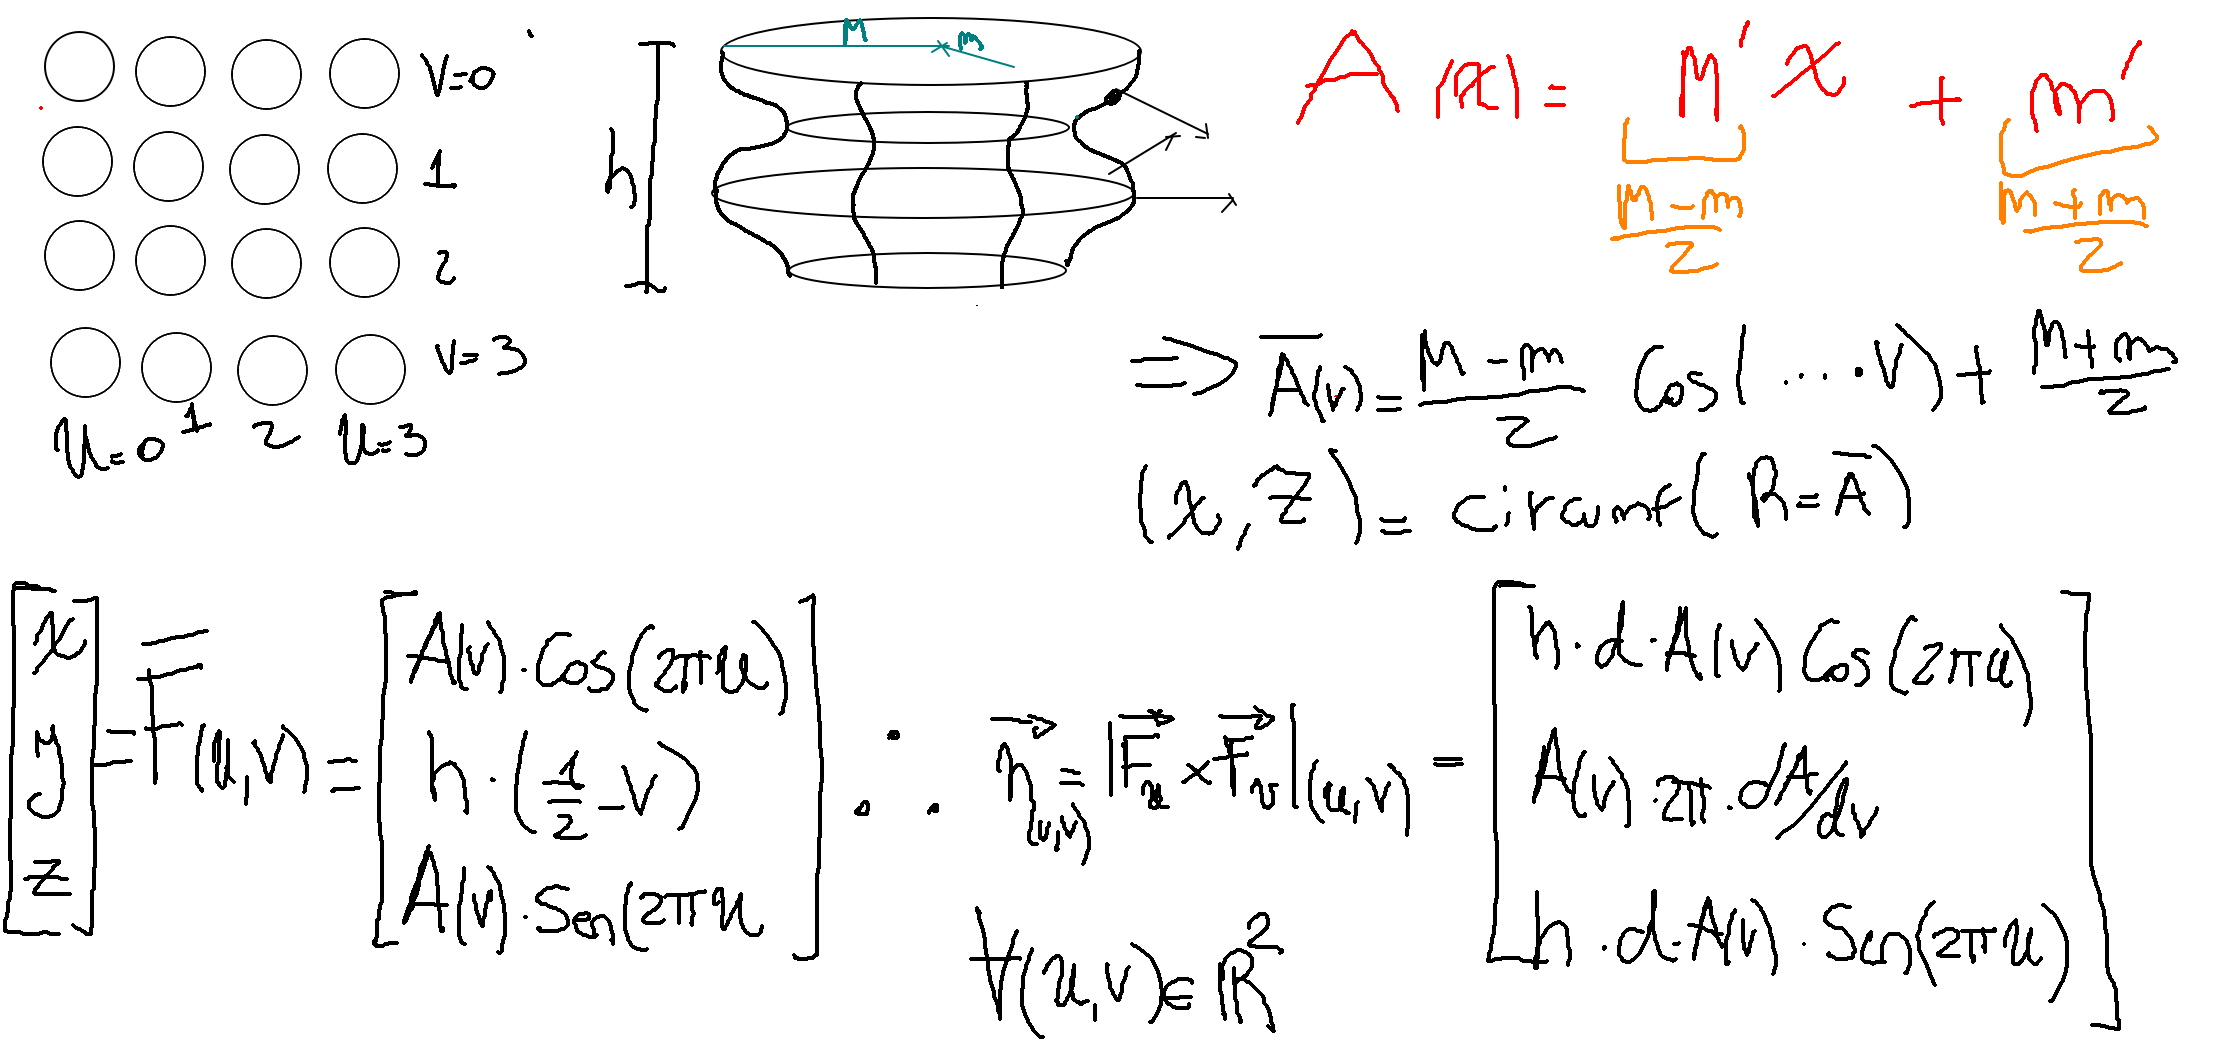 V=0
1
2
V=3
u=0 1 2 u=3
h
M m
A(x) = M' x + m'
M-m/2
M+m/2
⇒ A̅(v) = M-m/2 Cos(...·V) + M+m/2
(x, z) = circumf(R=A̅)
[x y z] = F̅(u,v) = [A(v)·Cos(2πu) h·(1/2-V) A(v)·Sen(2πu] ∴ n⃗(u,v) = |F⃗u × F⃗v|(u,v) = [h·d·A(v) Cos(2πu) A(v)·2π·dA/dv h·d·A(v)·Sen(2πu)]
∀(u,v)∈ℝ²